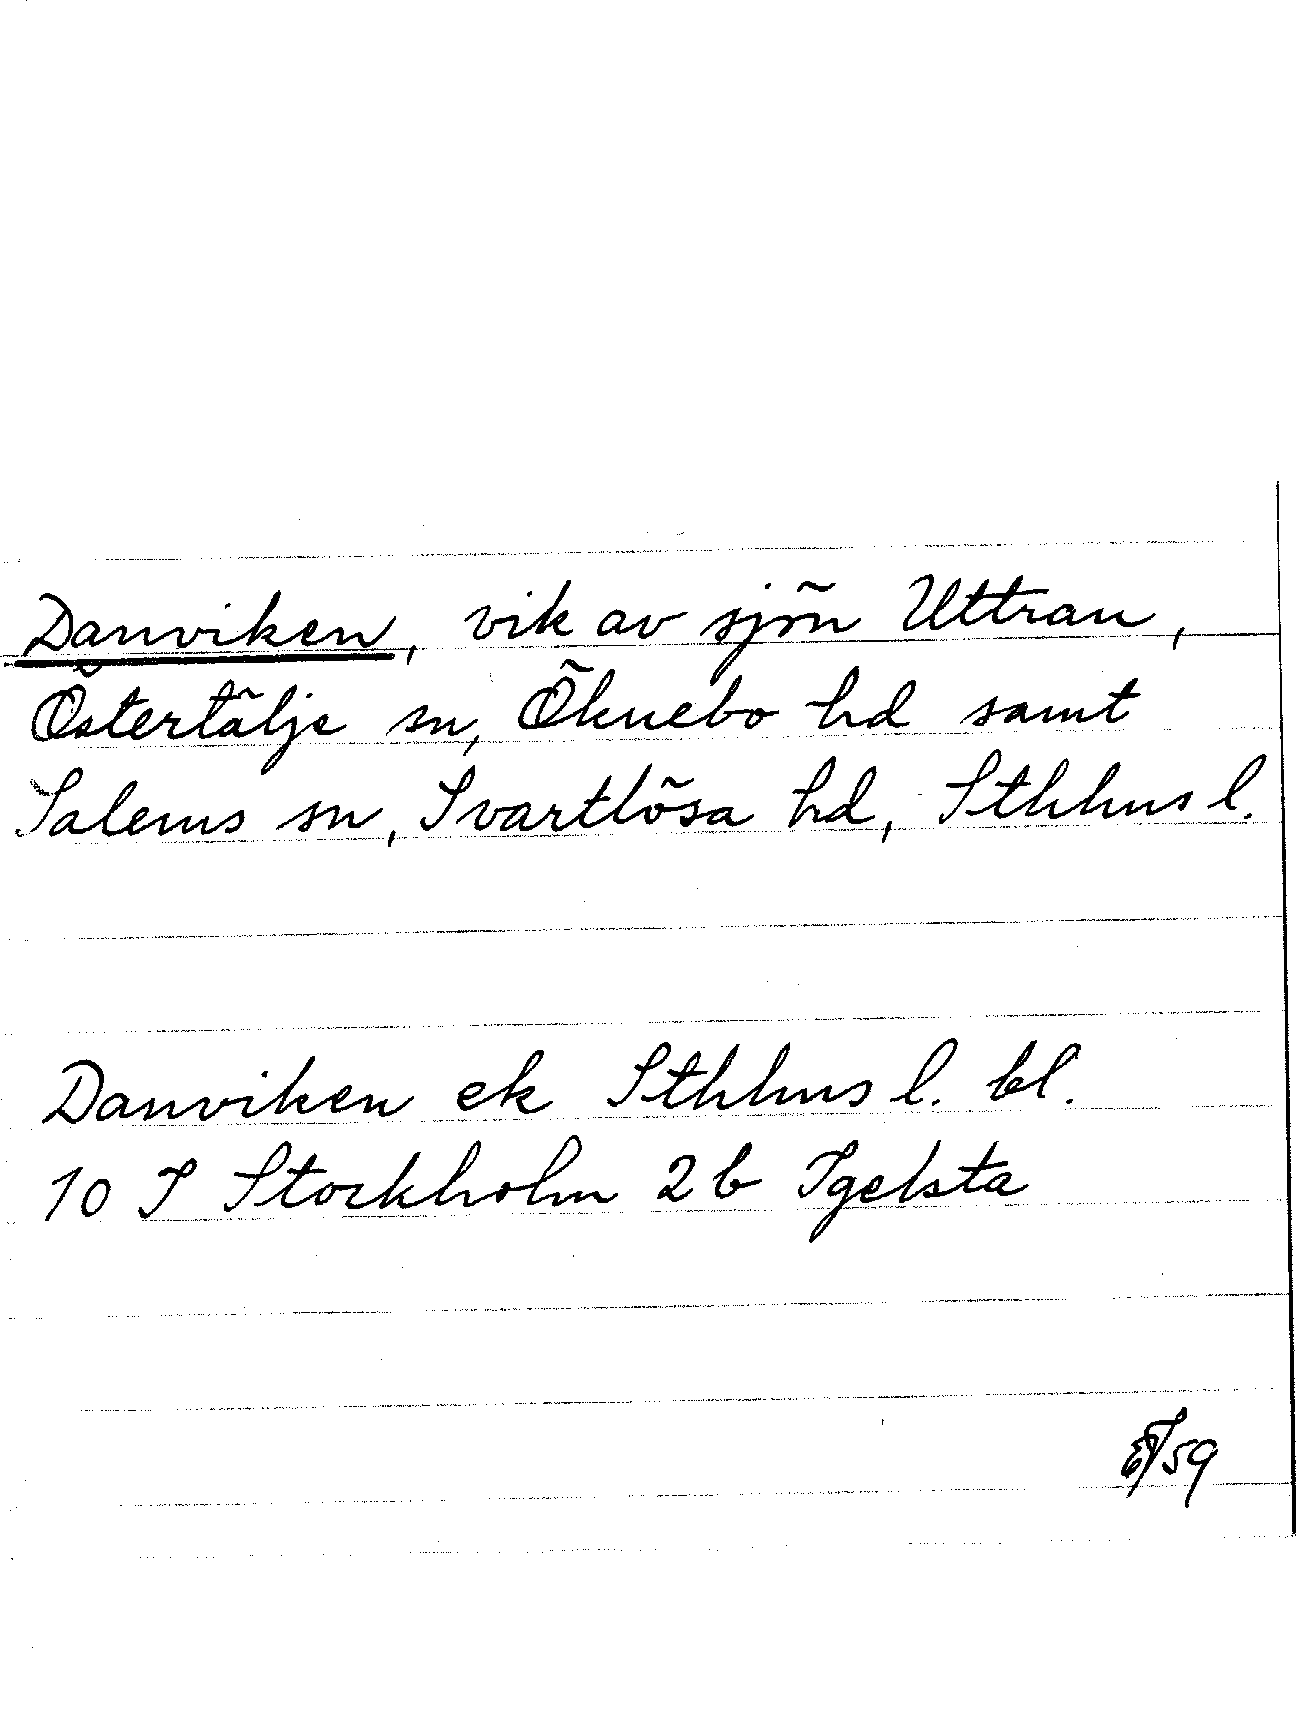 Danviken, vik av sjön Uttran,
Östertälje sn, Öknebo hd samt
Salems sn, Svartlösa hd, Sthlms l.
Danviken ek Sthlms l. bl.
10 I Stockholm 2b Igelsta
59